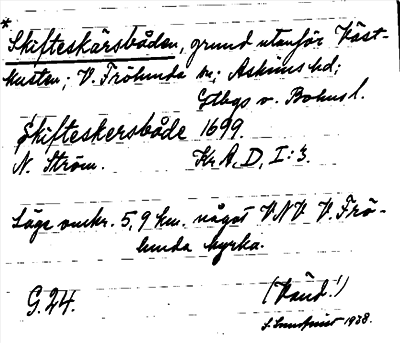 *
Skifteskärsbåden, grund utanför Väst-
kusten; V. Frölunda sn; Askims hd;
Gtbgs o. Bohusl.
Skifteskersbåde 1699.
N. Ström. Kr A, D, I:3.
Läge omkr. 5,9 km. något VNV V. Frö-
lunda kyrka.
G. 24. (Vänd!)
S. Lundqvist 1938.